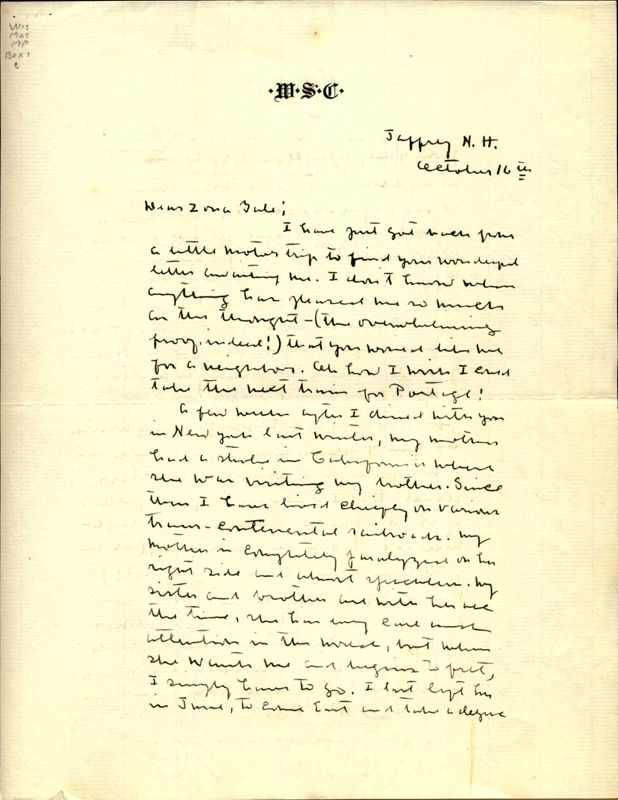 Wis
Mss
MP
Box 1
·W·S·C·
Jaffrey N. H.
October 16th
Dear Zona Gale;
I have just got back from
a little motor trip to find your wonderful
letter awaiting me. I don't know when
anything has pleased me so much
as the thought—(the overwhelming
proof, indeed!) that you would like me
for a neighbor. Oh how I wish I could
take the next train for Portage!
A few weeks after I dined with you
in New York last winter, my mother
had a stroke in California where
she was visiting my brother. Since
then I have lived chiefly on various
trans-continental railroads. My
mother is completely paralyzed on her
right side and almost speechless. My
sister and brother are with her all
the time, she has every care and
attention in the world, but when
she wants me and begins to fret,
I simply have to go. I last left her
in June, to come East and take a degree